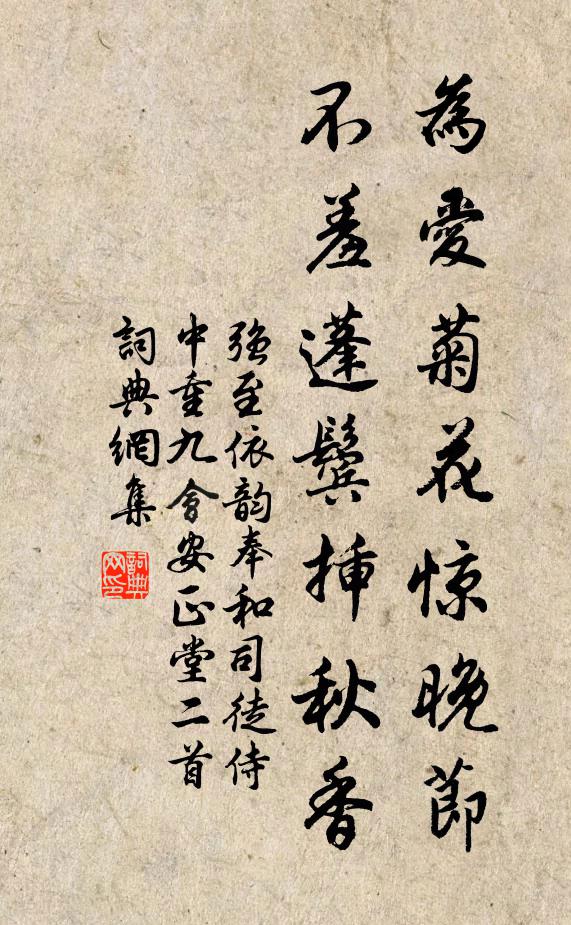 為愛菊花惊晚節
不羞蓬鬓揷秋香
强至依韵奉和司徒侍
中重九會安正堂二首
詞典網集
詞典
网印